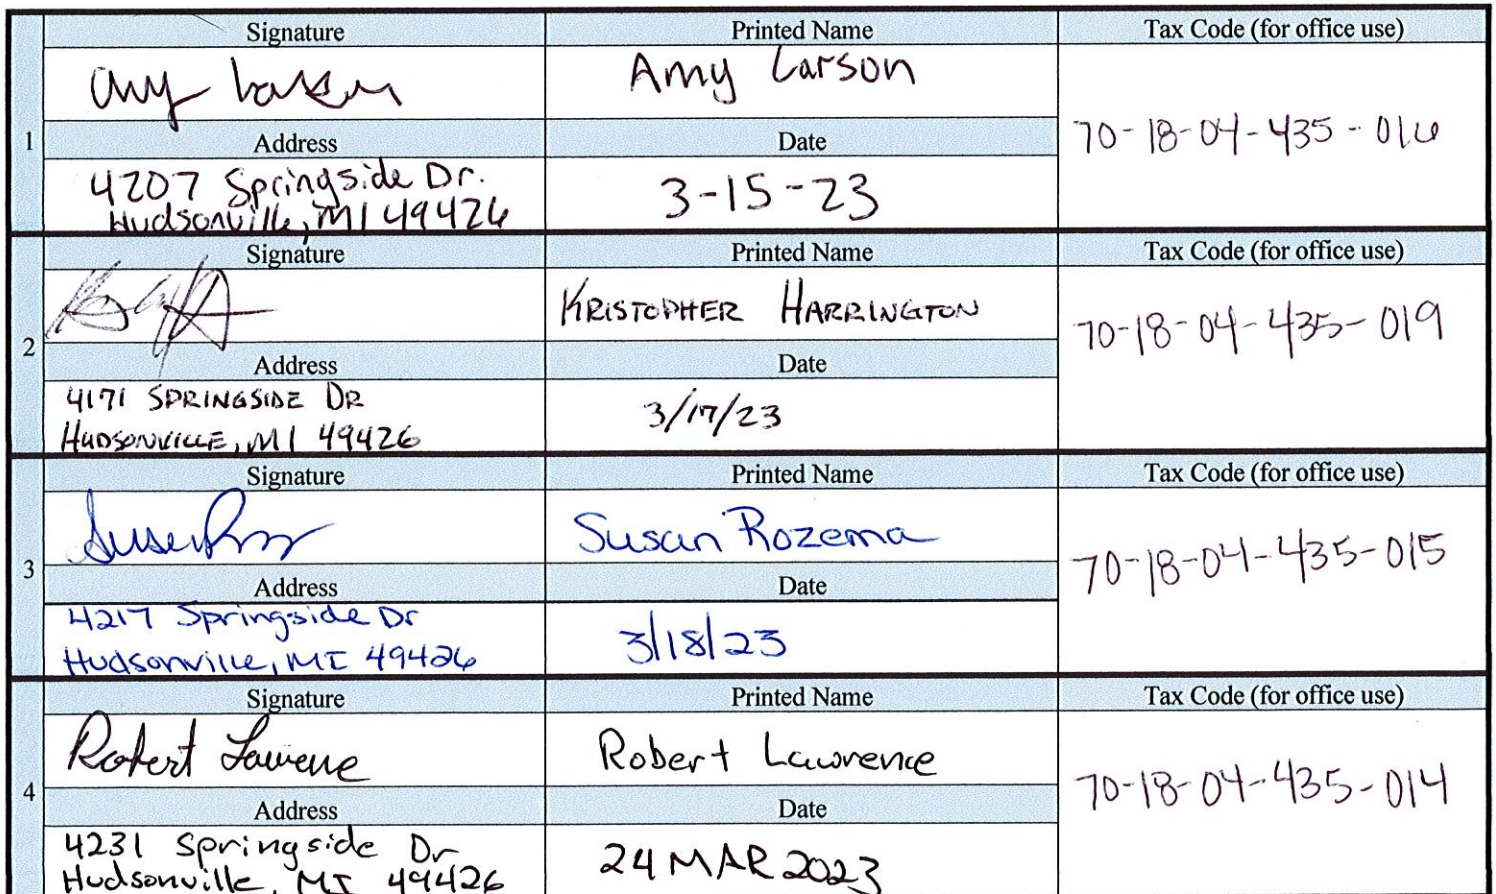 Signature Printed Name Tax Code (for office use)
Amy Larson Amy Larson
70-18-04-435-016
1
Address Date
4207 Springside Dr. 3-15-23
Hudsonville, MI 49426
Signature Printed Name Tax Code (for office use)
KRISTOPHER HARRINGTON
70-18-04-435-019
2
Address Date
4171 SPRINGSIDE DR 3/17/23
HUDSONVILLE, MI 49426
Signature Printed Name Tax Code (for office use)
Susan Rozema
70-18-04-435-015
3
Address Date
4217 Springside Dr 3/18/23
Hudsonville, MI 49426
Signature Printed Name Tax Code (for office use)
Robert Lawrence Robert Lawrence
70-18-04-435-014
4
Address Date
4231 Springside Dr 24 MAR 2023
Hudsonville, MI 49426